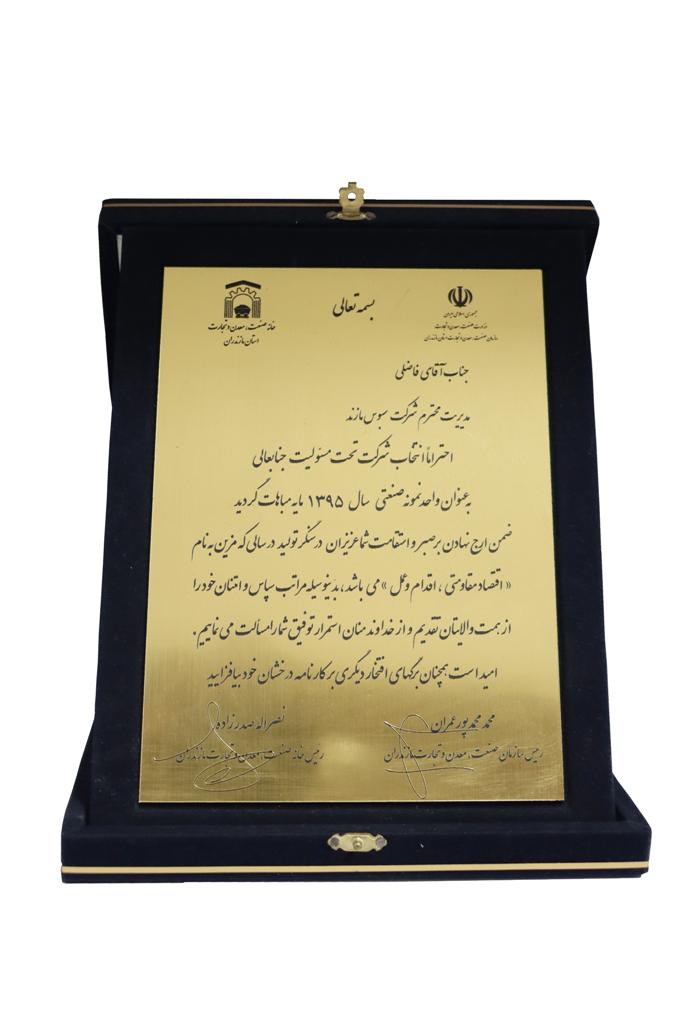 بسمه تعالی
جمهوری اسلامی ایران
وزارت صنعت، معدن و تجارت
سازمان صنعت، معدن و تجارت استان مازندران
خانه صنعت، معدن و تجارت
استان مازندران
جناب آقای فاضلی
مدیریت محترم شرکت سبوس مازند
احتراماً انتخاب شرکت تحت مسئولیت جنابعالی
به عنوان واحد نمونه صنعتی سال ۱۳۹۵ مایه مباهات گردید
ضمن ارج نهادن بر صبر و استقامت شما عزیزان در سنگر تولید در سالی که مزین به نام
« اقتصاد مقاومتی ، اقدام و عمل » می باشد، بدینوسیله مراتب سپاس و امتنان خود را
از همت والایتان تقدیم و از خداوند منان استمرار توفیق شما را مسألت می نماییم .
امید است همچنان برگهای افتخار دیگری بر کارنامه درخشان خود بیافزایید
محمد محمدپور عمران
رئیس سازمان صنعت، معدن و تجارت مازندران
نصراله صدرزاده
رئیس خانه صنعت، معدن و تجارت مازندران